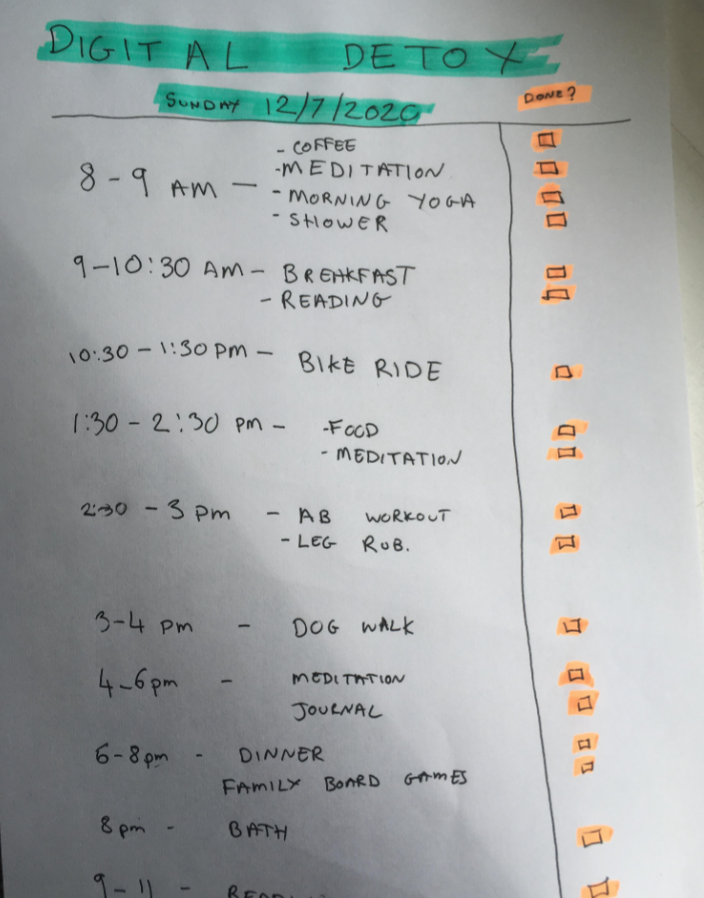 DIGITAL DETOX
SUNDAY 12/7/2020 DONE?
8-9 AM — - COFFEE
- MEDITATION
- MORNING YOGA
- SHOWER
9-10:30 AM - BREAKFAST
- READING
10:30 - 1:30 PM - BIKE RIDE
1:30 - 2:30 PM - - FOOD
- MEDITATION
2:30 - 3 PM - AB WORKOUT
- LEG RUB.
3-4 PM - DOG WALK
4-6pm - MEDITATION
JOURNAL
6-8pm - DINNER
FAMILY BOARD GAMES
8pm - BATH
9-11 -